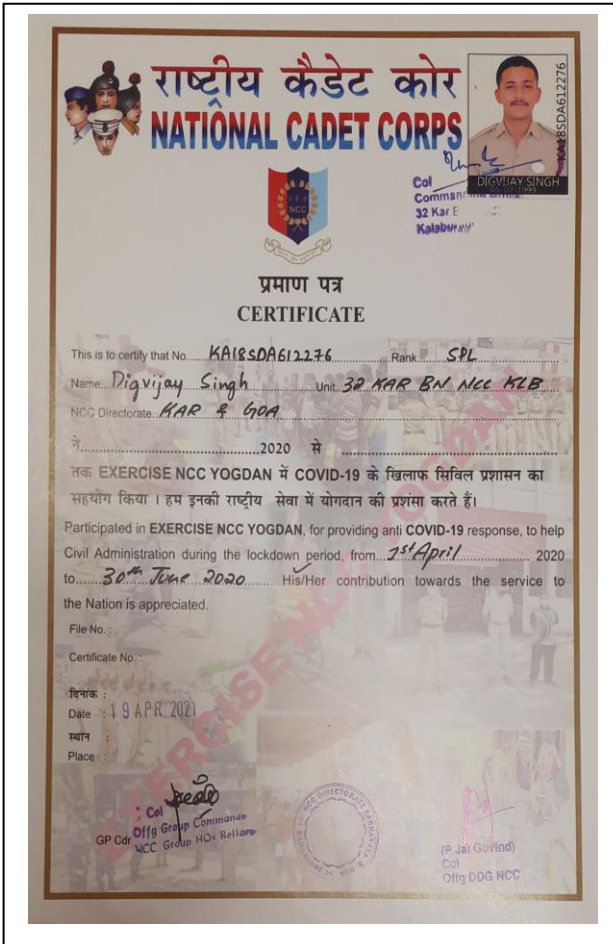 राष्ट्रीय कैडेट कोर
NATIONAL CADET CORPS
KA18SDA612276
DIGVIJAY SINGH
Col
32 Kar
NCC
प्रमाण पत्र
CERTIFICATE
This is to certify that No. KA18SDA612276 Rank SPL
Name Digvijay Singh Unit 32 KAR BN NCC KLB
NCC Directorate KAR & GOA
ने 2020 से
तक EXERCISE NCC YOGDAN में COVID-19 के खिलाफ सिविल प्रशासन का
सहयोग किया । हम इनकी राष्ट्रीय सेवा में योगदान की प्रशंसा करते हैं।
Participated in EXERCISE NCC YOGDAN, for providing anti COVID-19 response, to help
Civil Administration during the lockdown period, from 1st April 2020
to 30th June 2020 His/Her contribution towards the service to
the Nation is appreciated.
File No. :
Certificate No. :
दिनाक :
Date : 19 APR 2021
स्थान :
Place :
EXERCISE NCC YOGDAN
Col
Offg Group Commander
GP Cdr NCC Group HQs
NCC DIRECTORATE KARNATAKA & GOA
(P Jai Govind)
Col
Offg DDG NCC